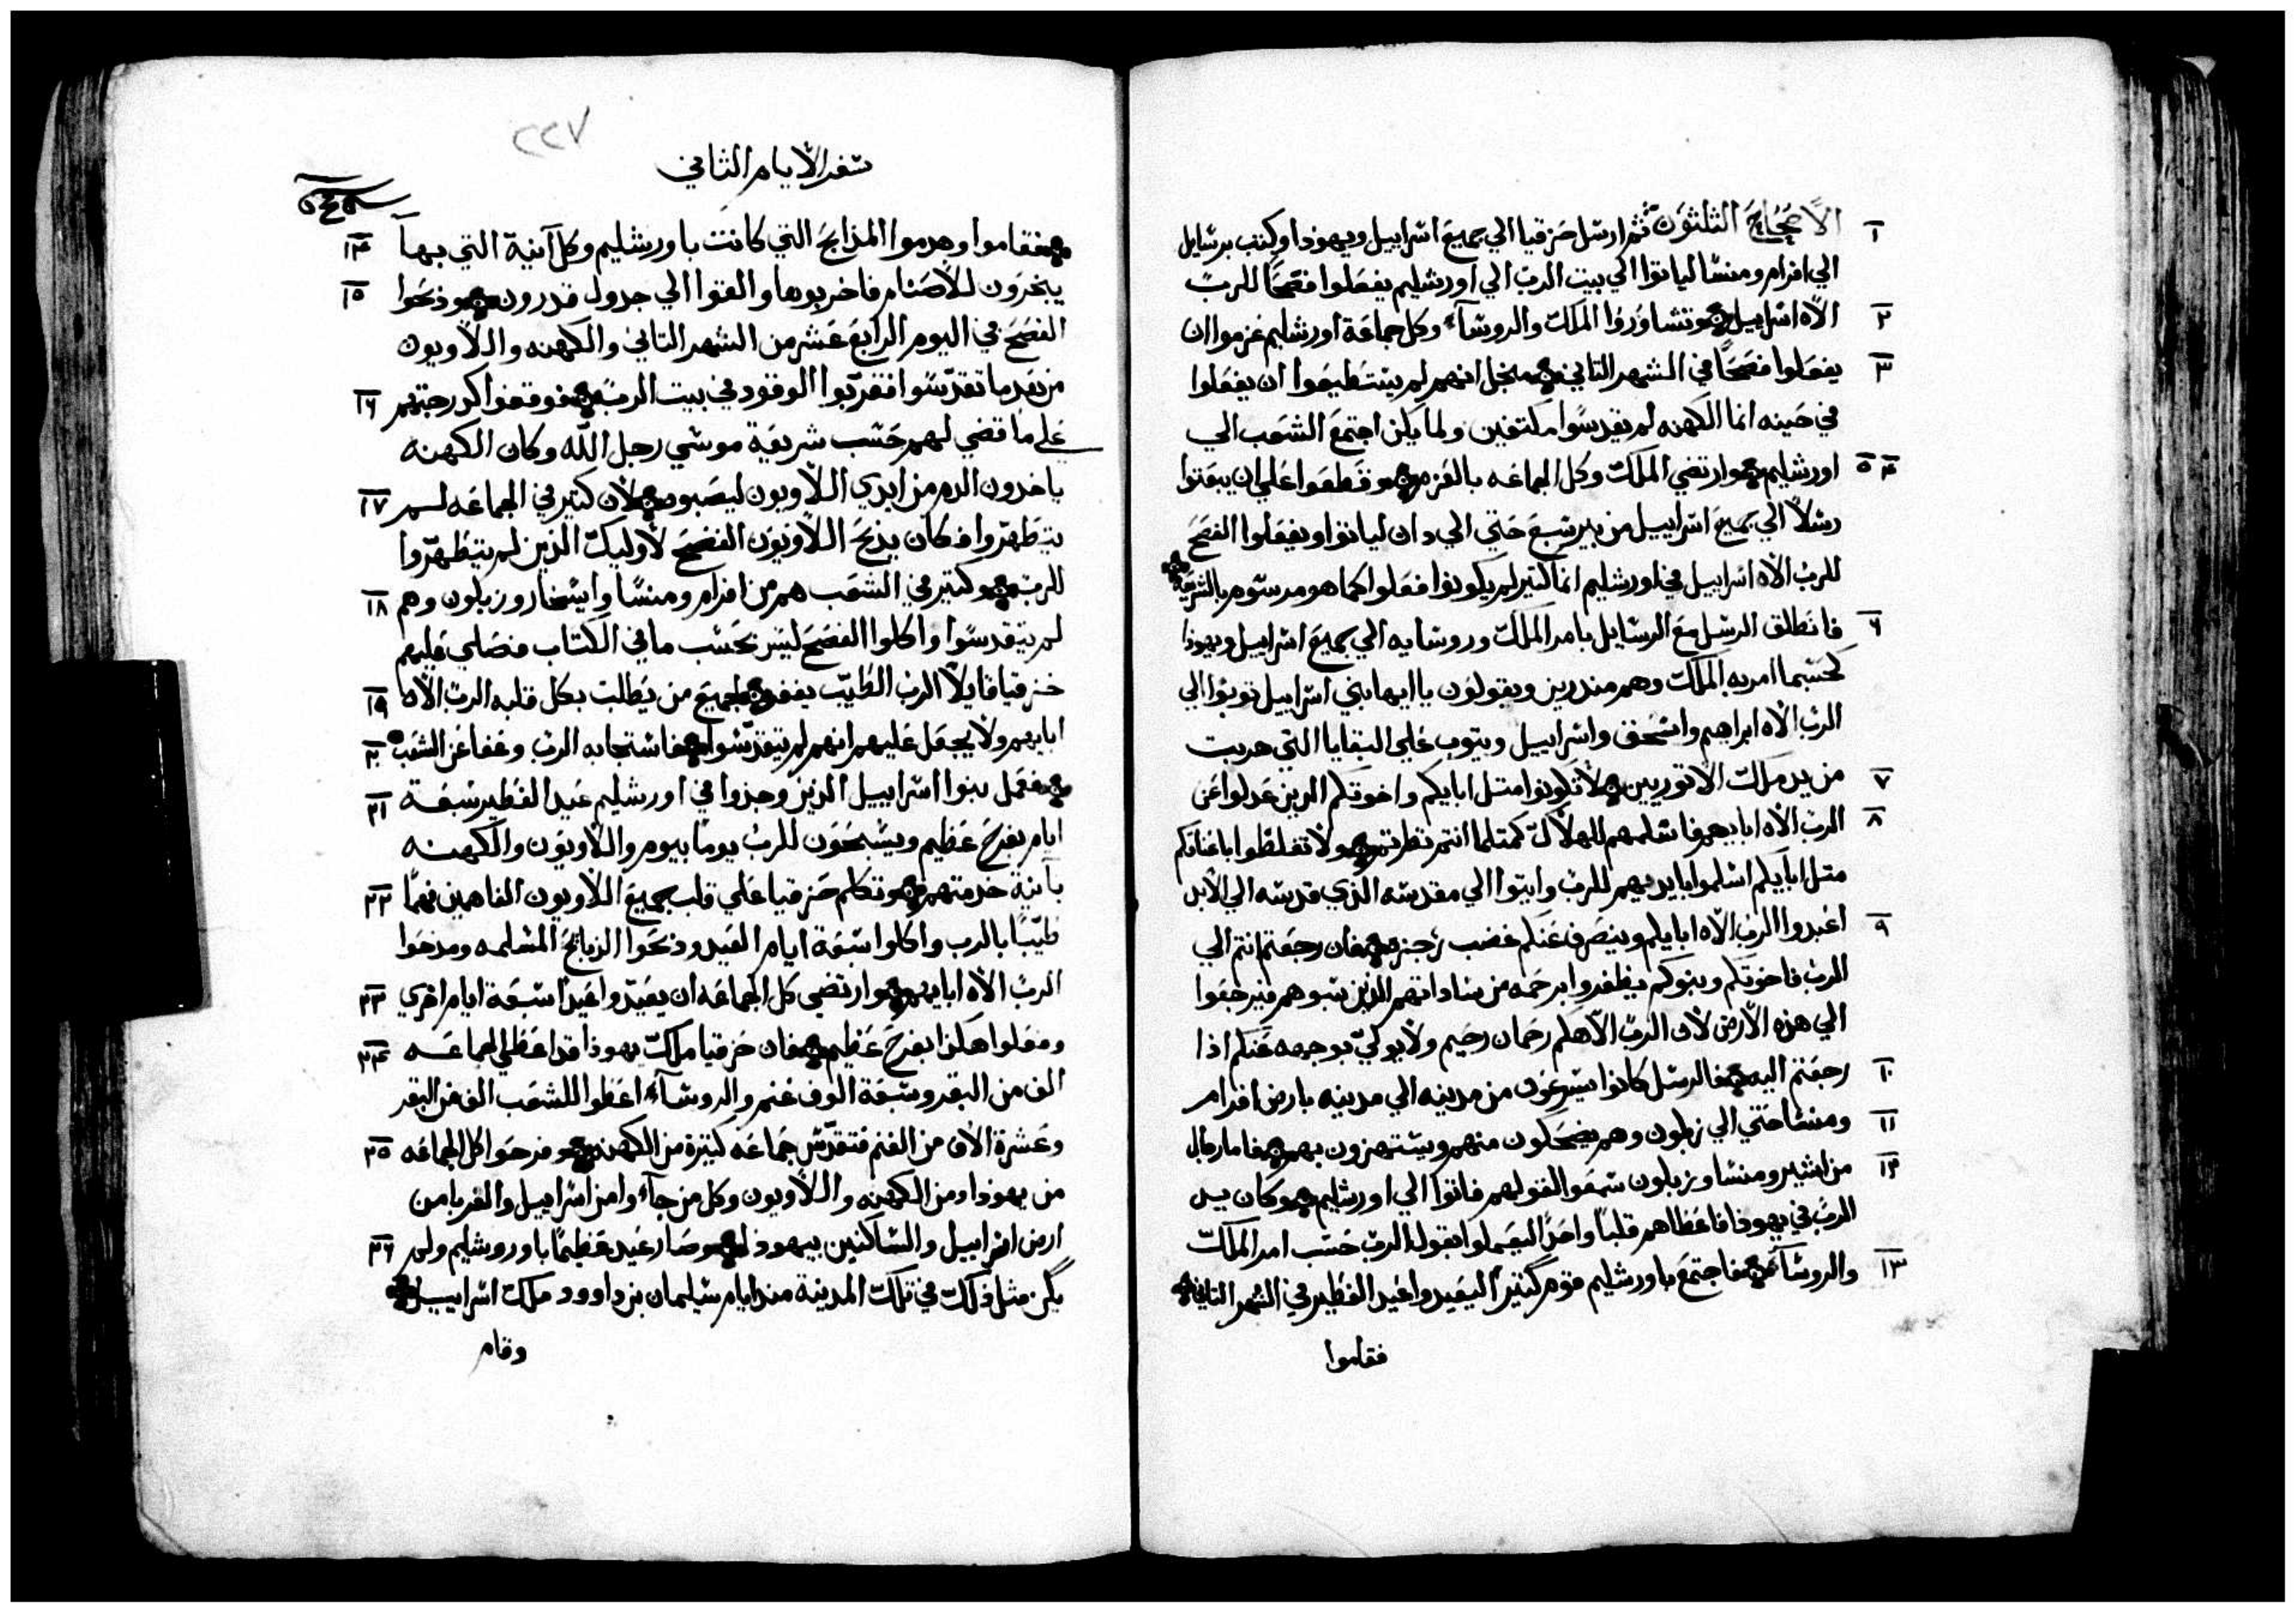 ١ الاصحاح الثلثون ثم ارسل حزقيا الي جميع اسراييل ويهودا وكتب برسايل
الي افرام ومنسا لياتوا الي بيت الرب الي اورشليم يفعلوا فصحًا للرب
٢ الاه اسراييل وتشاوروا الملك والروساء وكل جماعة اورشليم عزموا ان
٣ يفعلوا فصحًا في الشهر التاني منجل انهم لم يتسطيعوا ان يفعلوا
في حينه انما الكهنه لم يقدسوا مكتفين ولما يكن اجتمع الشعب الي
٤ ٥ اورشليم وارتضي الملك وكل الجماعه بالعزم وقطعوا علي ان يبعتوا
رسلاً الي جميع اسراييل من بير سبع حتي الي دان لياتوا ويفعلوا الفصح
للرب الاه اسراييل في اورشليم انما كتير لم يكونوا فعلوا كما هو مرسوم بالشريعة
٦ فانطلق الرسل مع الرسايل بامر الملك وروسايه الي جميع اسراييل ويهودا
كحسبما امر به الملك وهم منذرين ويقولون يا ايها بني اسراييل توبوا الي
الرب الاه ابراهيم واسحق واسراييل ويتوب علي البقايا التي هربت
٧ من يد ملك الاتوريين لا تكونوا متل ابايكم واخوتكم الدين عدلوا عن
٨ الرب الاه ابايهم فاسلمهم للهلاك كمتلما انتم تطرتم ولا تغلظوا اباعناقكم
متل ابايكم اسلموا بايديهم للرب وايتوا الي مقدسه الذي قدسه الي الابد
٩ اعبدوا الرب الاه ابايكم وينصرف عنكم غضب رجزه فان رجعتم انتم الي
الرب فاخوتكم وبنوكم يظفروا برحمه من ساداتهم الذين سبوهم فيرجعوا
الي هذه الارض لان الرب الاهكم رحمان رحيم ولا يوليّ بوجهه عنكم اذا
١٠ رجعتم اليه فالرسل كانوا يسرعون من مدينه الي مدينه بارض افرام
١١ ومنسا حتي الي زبلون وهم يضحكون منهم ويستهزون بهم فاما رجال
١٢ من اشير ومنسا وزبلون سمعوا لقولهم فاتوا الي اورشليم وكان يد
الرب في يهودا فاعطاهم قلبًا واحدًا ليعملوا بقول الرب حسب امر الملك
١٣ والروساء فاجتمع باورشليم قوم كتير ليعيدوا عيد الفطير في الشهر التاني
فقاموا
٢٢٧
سفر الايام التاني
فقاموا وهدموا المذابح التي كانت باورشليم وكل آنية التي بها ١٤
يبخرون للاصنام فاخربوها والقوا الي جدول قدرون وذبحوا ١٥
الفصح في اليوم الرابع عشر من الشهر التاني والكهنه واللاويون
من بعد ما تقدّسوا فقربّوا الوقود في بيت الرب فوقفوا كدرجتهم ١٦
علي ما قضي لهم حسب شريعة موسي رجل الله وكان الكهنه
ياخدون الدم من ايدي اللاويون ليصبون لان كتير في الجماعه لم ١٧
يتطهّروا فكان يذبح اللاويون الفصح لاوليك الذين لم يتطهرّوا
للرب وكتير في الشعب هم من افرام ومنسا وايسخار وزبلون وهم ١٨
لم يتقدسوا واكلوا الفصح ليس بحسب ما في الكتاب فصلي عليهم
حزقيا قايلاً الرب الطيّب يغفر لجميع من يطلب بكل قلبه الرب الاه ١٩
ابايهم ولا يجعل عليهم انهم لم يتقدّسوا فاستجابه الرب وغفا عن الشعب ٢٠
فعمل بنوا اسراييل الذين وجدوا في اورشليم عيد الفطير سبعة ٢١
ايام بفرح عظيم ويسبحون للرب يومًا بيوم واللاويون والكهنه
بآنية خدمتهم وتكلم حزقيا علي قلب جميع اللاويون الفاهمين فهمًا ٢٢
طيّبًا بالرب واكلوا سبعة ايام العيد وذبحوا الذبايح المسلمه ومدحوا
الرب الاه ابايهم وارتضي كل الجماعه ان يعيّدوا عيدًا سبعة ايام اخري ٢٣
وفعلوا هكذا بفرح عظيم فان حزقيا ملك يهودا قد اعطي للجماعه ٢٤
الف من البقر وسبعة الوف غنم والروساء اعطوا للشعب الف من البقر
وعشرة الاف من الغنم فتقدّس جماعه كتيرة من الكهنه وفرحوا كل الجماعه ٢٥
من يهودا ومن الكهنه واللاويون وكل من جاءوا من اسراييل والغربا من
ارض اسراييل والساكنين بيهودا وصار عيد عظيمًا باوروشليم ولم ٢٦
يكن مثل ذلك في تلك المدينة مند ايام سليمان بن داوود ملك اسراييل
وقام